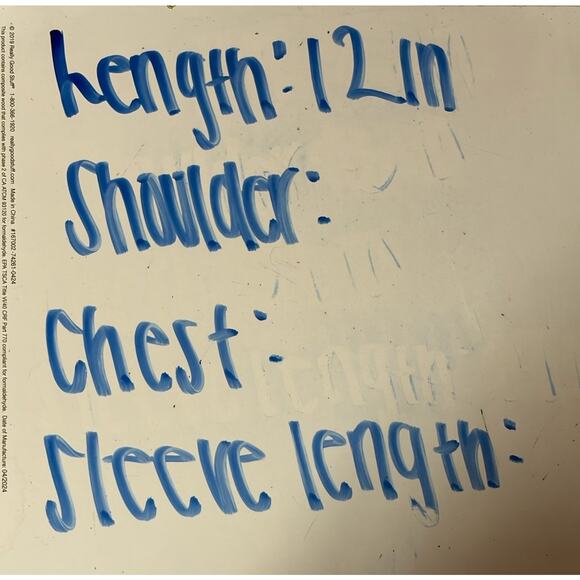 Length: 12 in
Shoulder:
Chest:
Sleeve length:
© 2019 Really Good Stuff® 1-800-366-1920 reallygoodstuff.com Made in China #167002-74261-0424
This product contains composite wood that complies with phase 2 of CA ATCM 93120 for formaldehyde. EPA TSCA Title VI/40 CRF Part 770 compliant for formaldehyde. Date of Manufacture: 04/2024